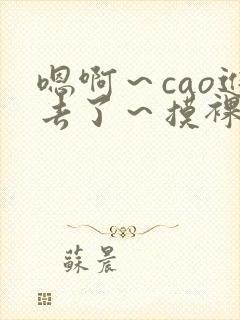 嗯啊～cao进
去了～摸裸
蘇晨